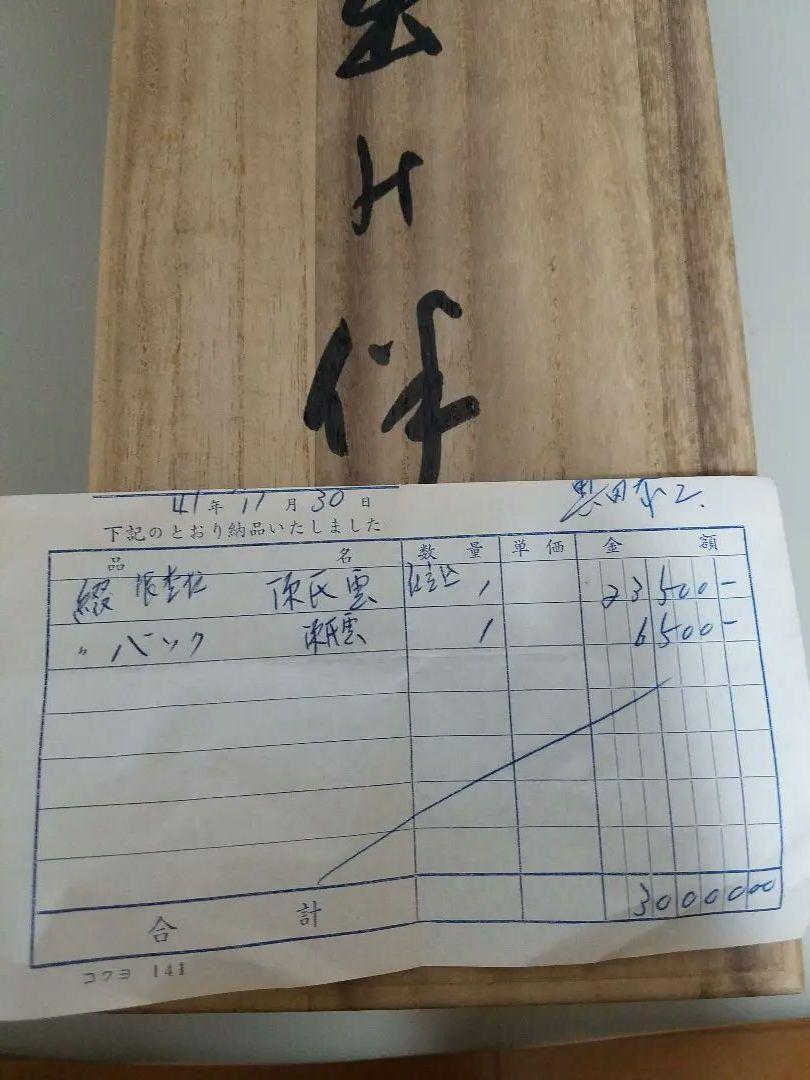 伴
41年11月30日
下記のとおり納品いたしました
品名 数量 単価 金額
綴 陳氏雲 1 23500-
〃バック 陳氏雲 1 6500-
合計 3000000
コクヨ 141